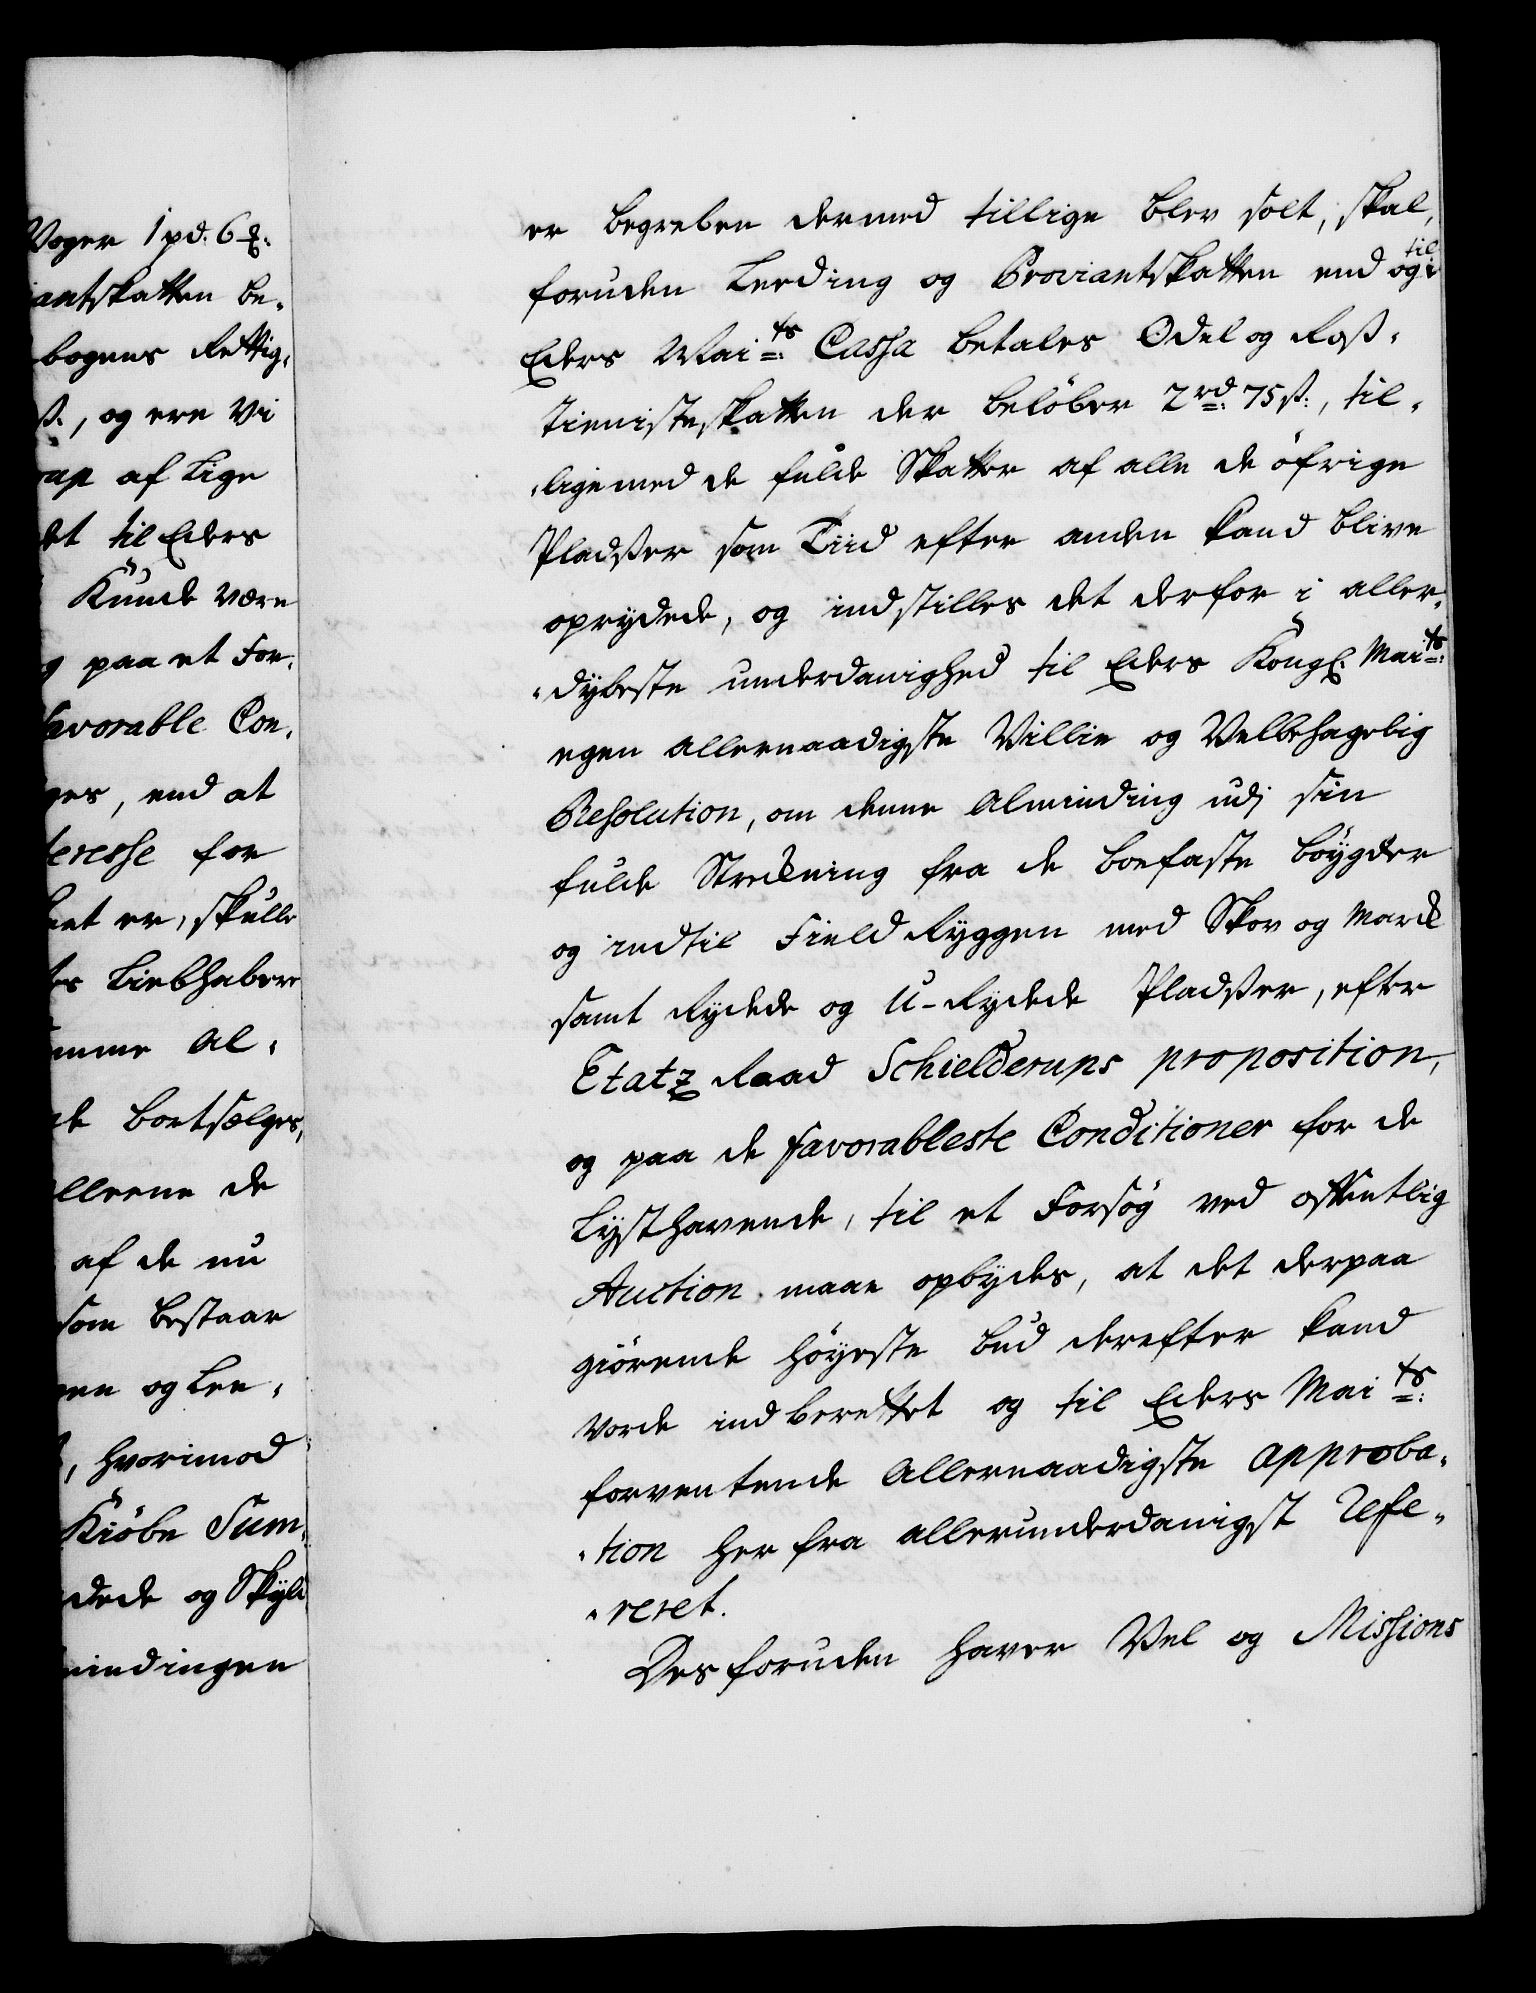 Voger 1 pd: 6
antskatten be„
bogens Rettig„
ß:, og ere Vi
rup af Lige
det til Eders
Kunde være
g paa et For„
favorable Con„
ges, end at
teresse for
et er, skulle
es Liebhabere
mme Al„
de bortsælges,
llerne de
af de nu
som bestaar
en og Lee„
, hvorimod
Kiöbe Sum„
dede og Skyld
mindingen
er begreben dermed tillige blev solt, skal,
foruden Leeding og Proviantskatten end og til
Eders Mai:ts Cassa betales Odel og Roß„
Tienisteskatten der belöber 2 rd: 75 ß:, til„
„lige med de fulde Skatter af alle de öfrige
Pladßer som Tiid efter anden kand blive
oprydede, og indstilles det derfor i aller„
„dybeste underdanighed til Eders Kongl: Mai:ts
egen allernaadigste Villie og Velbehagelig
Resolution, om denne Alminding udj sin
fulde Streckning fra de boefaste böygder
og indtil Field Ryggen med Skov og Marck
samt Rydede og U-Rydede Pladßer, efter
Etatz Raad Schielderups proposition,
og paa de favorableste Conditioner for de
Lysthavende, til et Forsög ved offentlig
Auction maae opbydes, at det derpaa
giörende höyeste bud derefter kand
vorde indberettet og til Eders Mai:ts
forventende allernaadigste approba„
„tion her fra allerunderdanigst refe„
„reret.
Desforuden haver Vel og Missions